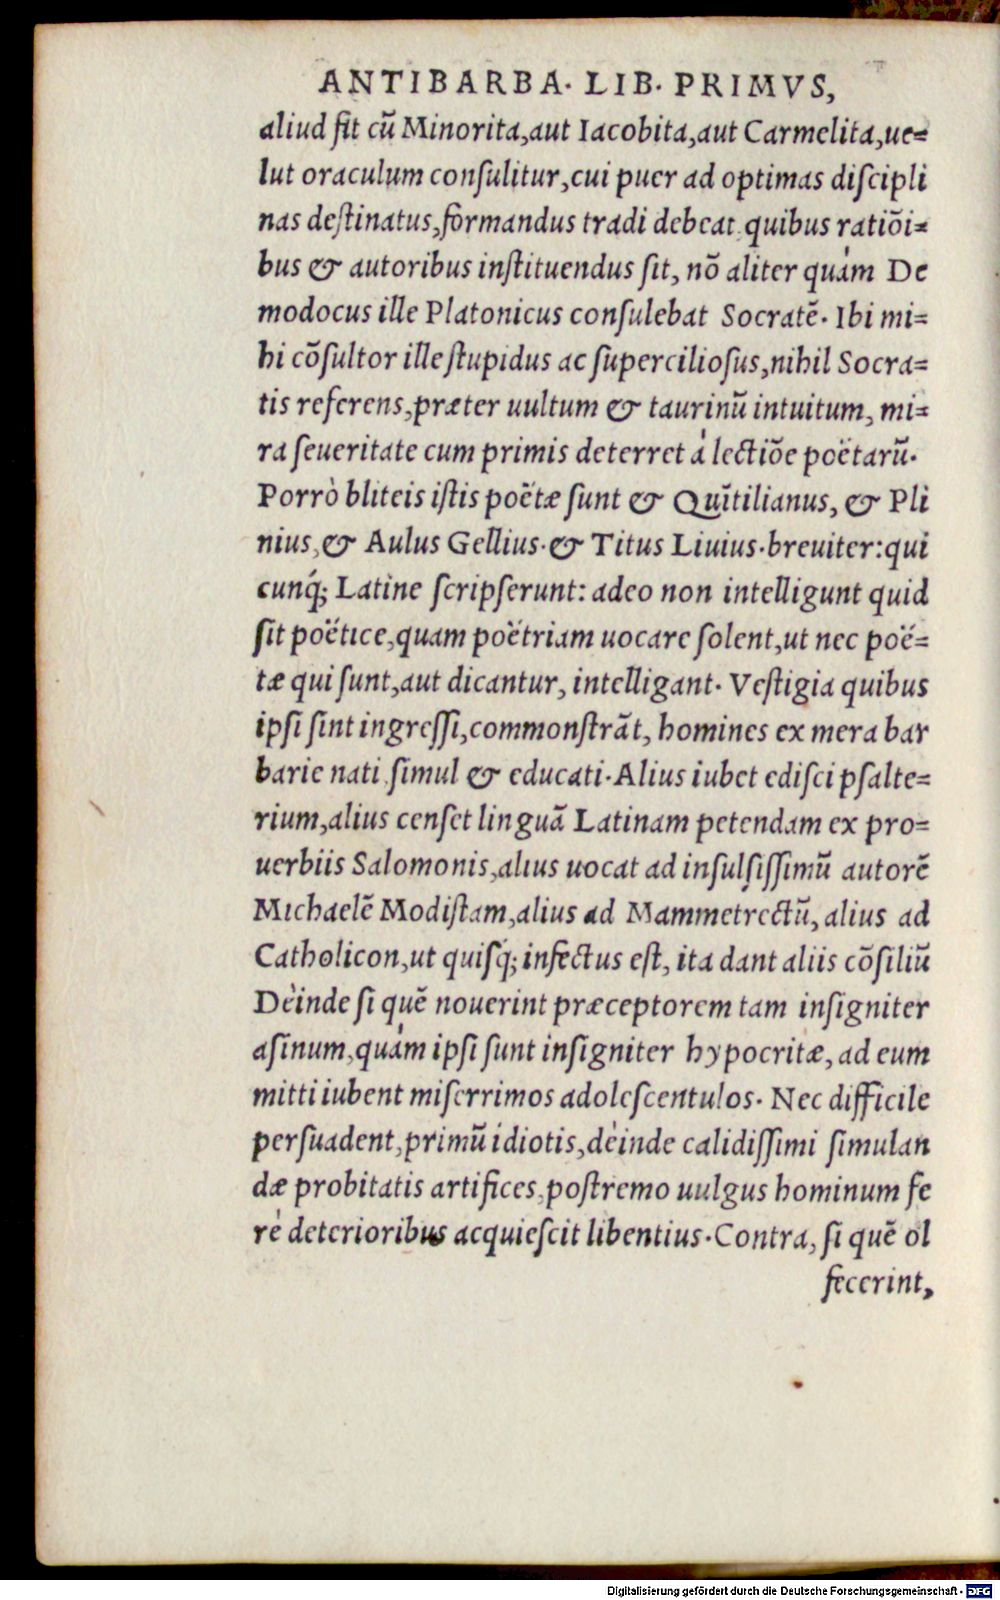 ANTIBARBA. LIB. PRIMVS,
aliud sit cũ Minorita, aut Iacobita, aut Carmelita, ue=
lut oraculum consulitur, cui puer ad optimas discipli
nas destinatus, formandus tradi debeat. quibus ratiõi=
bus & autoribus instituendus sit, nõ aliter quàm De
modocus ille Platonicus consulebat Socratẽ. Ibi mi=
hi cõsultor ille stupidus ac superciliosus, nihil Socra=
tis referens, præter uultum & taurinũ intuitum, mi=
ra seueritate cum primis deterret à lectiõe poëtarũ.
Porrò bliteis istis poëtæ sunt & Quĩtilianus, & Pli
nius, & Aulus Gellius. & Titus Liuius. breuiter: qui
cunq́; Latine scripserunt: adeo non intelligunt quid
sit poëtice, quam poëtriam uocare solent, ut nec poë=
tæ qui sunt, aut dicantur, intelligant. Vestigia quibus
ipsi sint ingressi, commonstrãt, homines ex mera bar
barie nati simul & educati. Alius iubet edisci psalte=
rium, alius censet linguã Latinam petendam ex pro=
uerbiis Salomonis, alius uocat ad insulsissimũ autorẽ
Michaelẽ Modistam, alius ad Mammetrectũ, alius ad
Catholicon, ut quisq́; infectus est, ita dant aliis cõsiliũ
Dèinde si quẽ nouerint præceptorem tam insigniter
asinum, quàm ipsi sunt insigniter hypocritæ, ad eum
mitti iubent miserrimos adolescentulos. Nec difficile
persuadent, primũ idiotis, dèinde calidissimi simulan
dæ probitatis artifices, postremo uulgus hominum fe
rè deterioribus acquiescit libentius. Contra, si quẽ ol
fecerint,
Digitalisierung gefördert durch die Deutsche Forschungsgemeinschaft - DFG